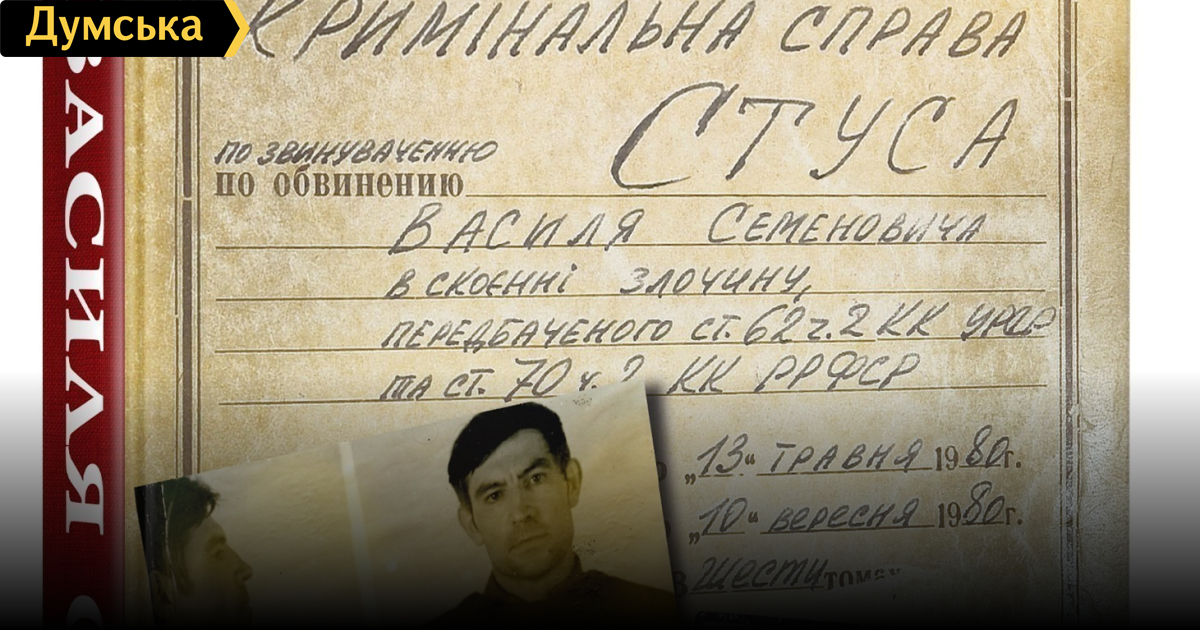 Думська
КРИМІНАЛЬНА СПРАВА
СТУСА
ПО ЗВИНУВАЧЕННЮ
по обвинению
ВАСИЛЯ СЕМЕНОВИЧА
В СКОЄННІ ЗЛОЧИНУ,
ПЕРЕДБАЧЕНОГО СТ. 62 Ч. 2 КК УРСР
ТА СТ. 70 Ч. 2 КК РРФСР
„13“ ТРАВНЯ 1980г.
„10“ вересня 1980г.
В Шести томах
ВАСИЛЯ С